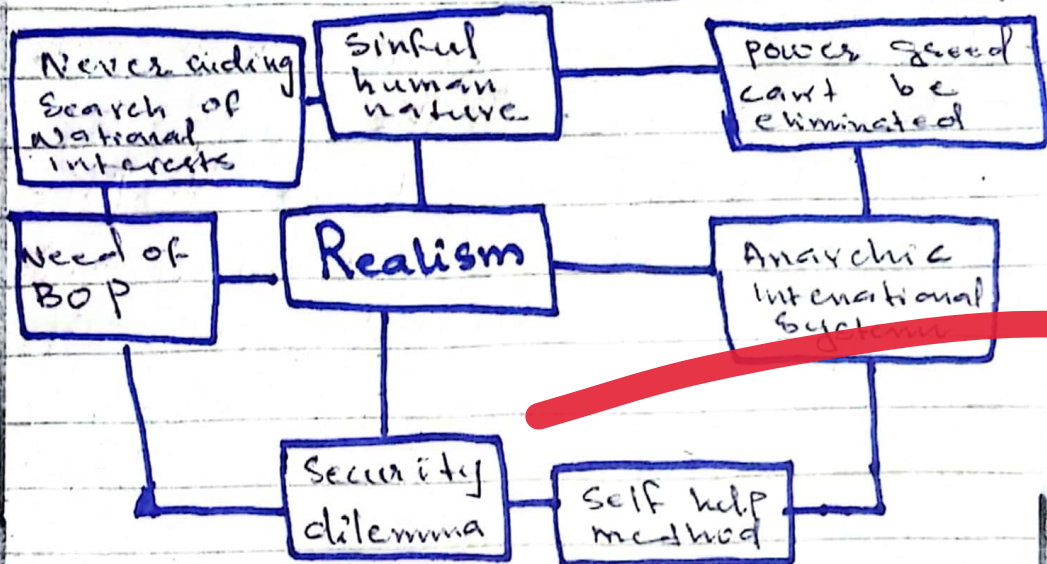 Never ending
Search of
National
interests
Sinful
human
nature
power greed
can't be
eliminated
Need of
BOP
Realism
Anarchic
Intenational
System
Security
dilemma
Self help
method